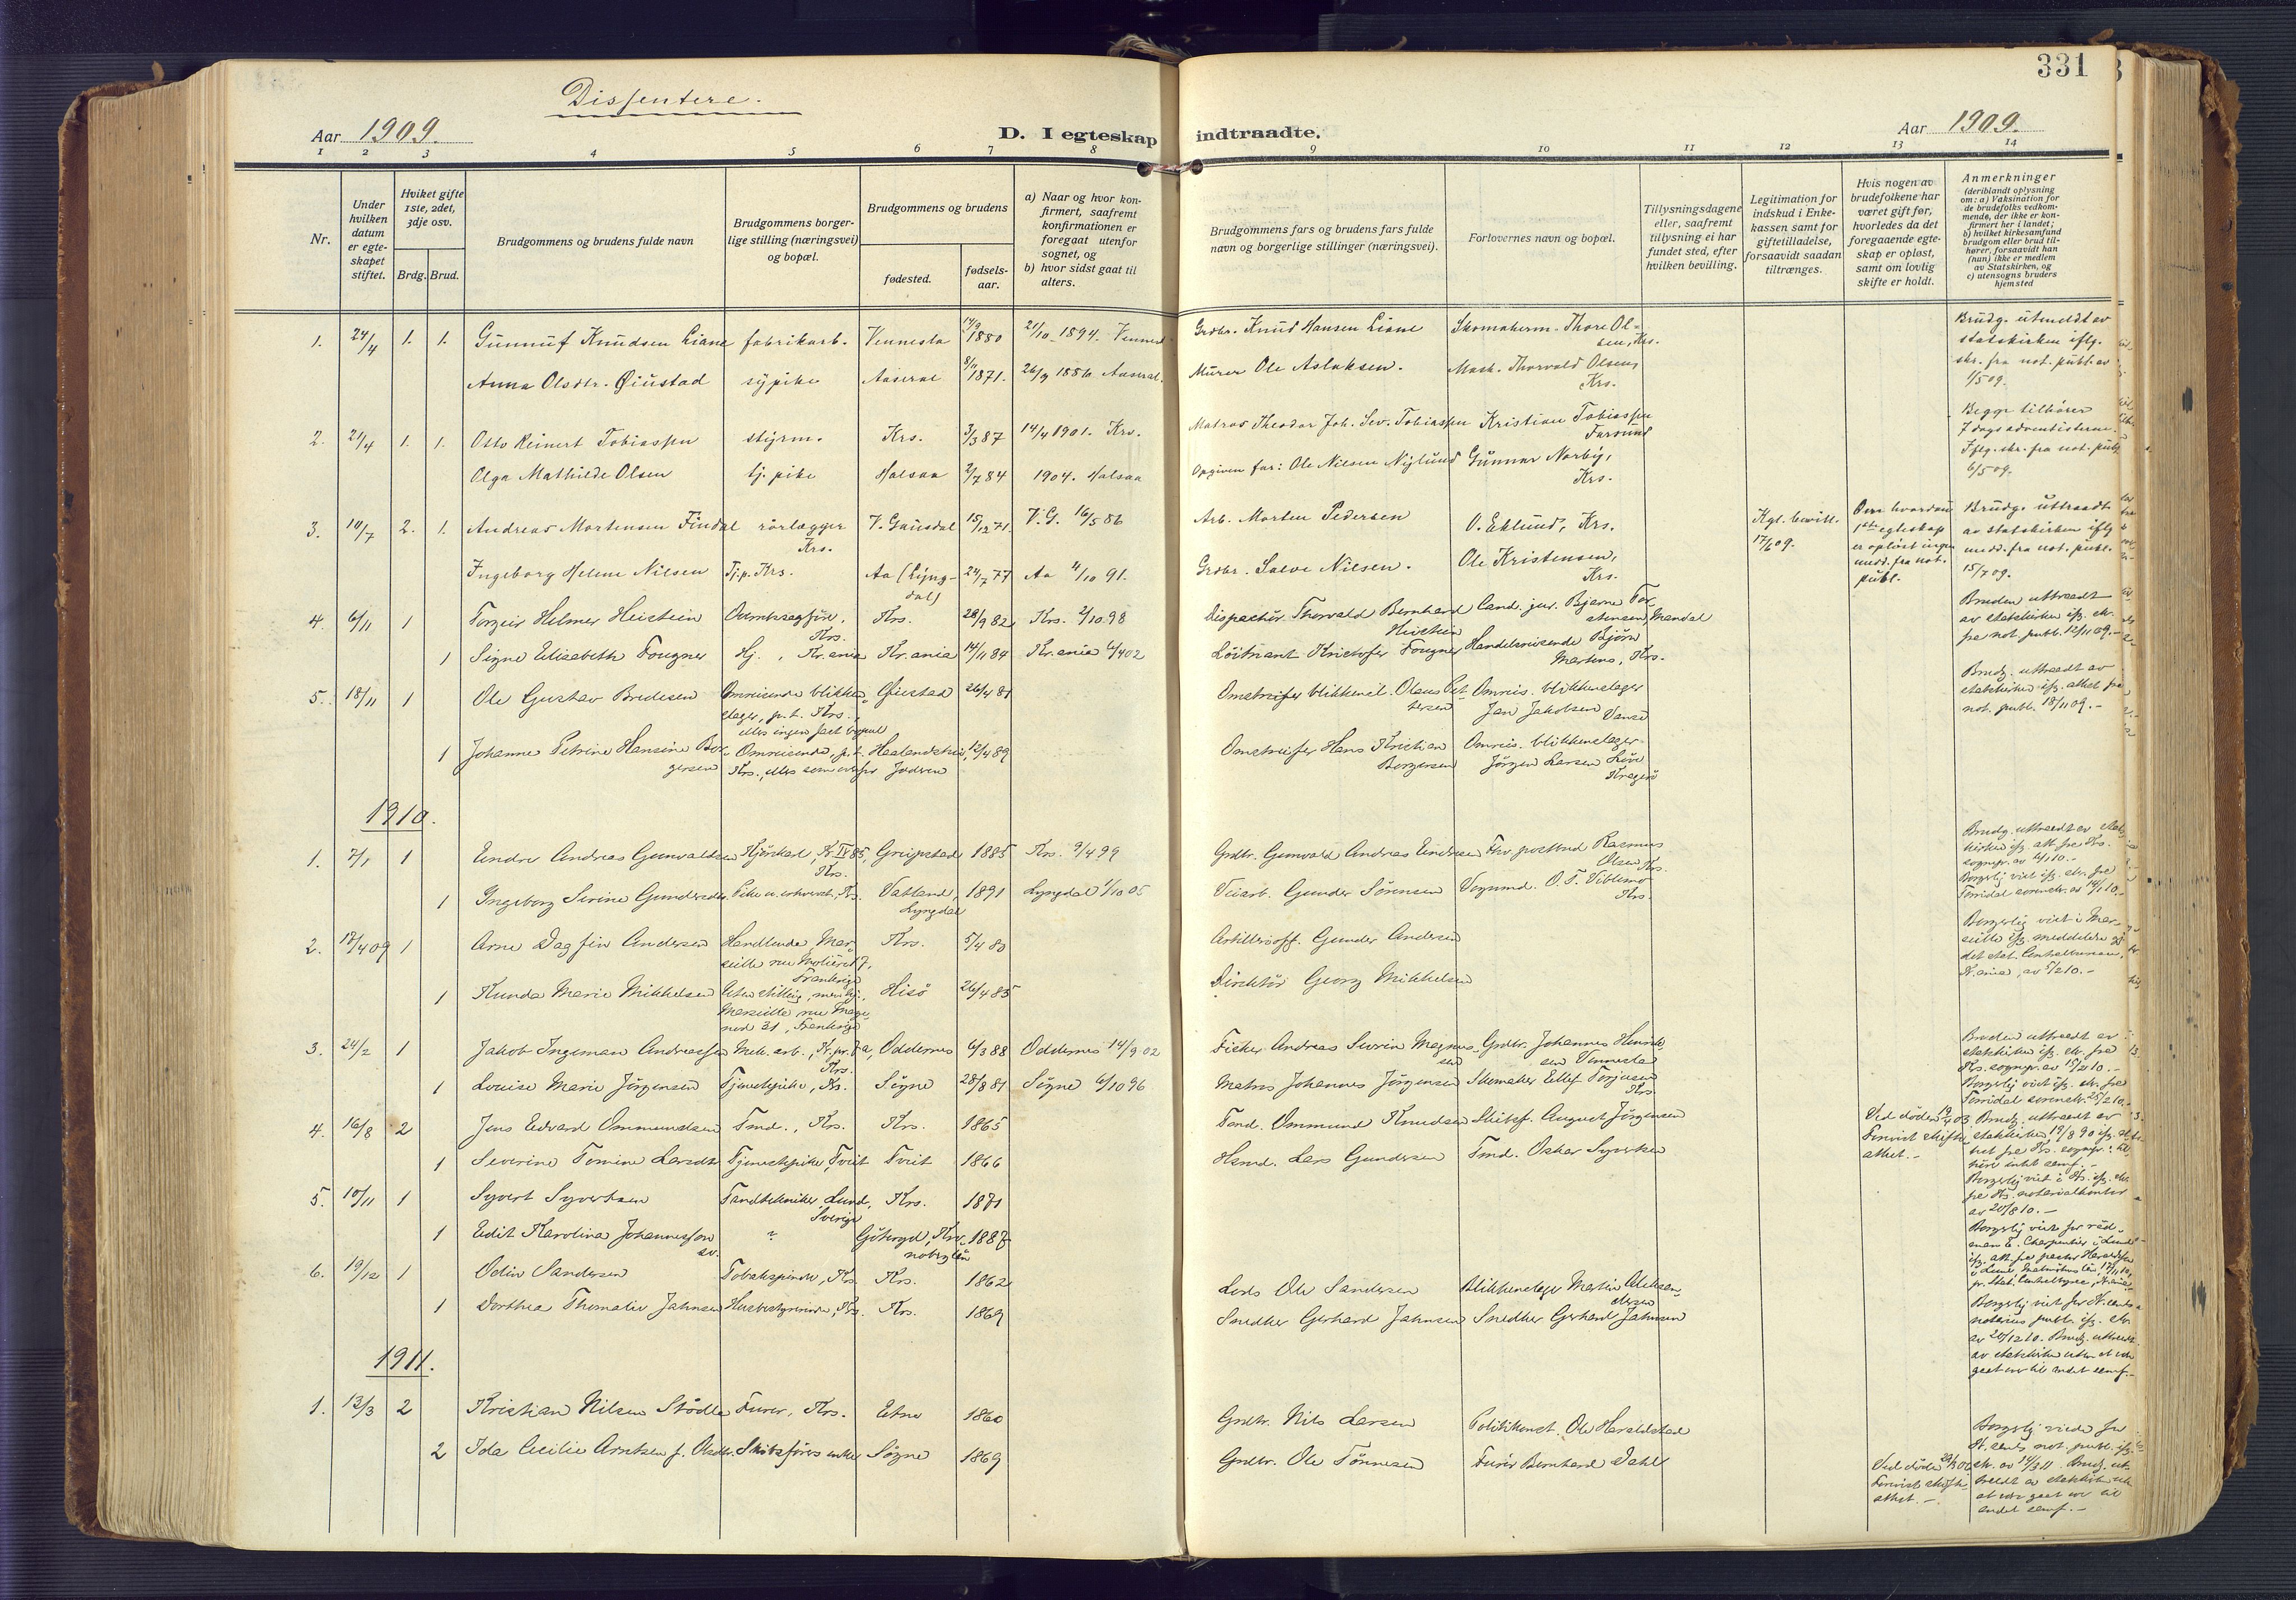 331
Dissentere.
Aar 1909.
D. I egteskap indtraadte.
Aar 1909.
1 2 3 4 5 6 7 8 9 10 11 12 13 14
Nr.
Under hvilken datum er egte-skapet stiftet.
Hviket gifte 1ste, 2det, 3dje osv.
Brdg. Brud.
Brudgommens og brudens fulde navn
Brudgommens borger-lige stilling (næringsvei) og bopæl.
Brudgommens og brudens
fødested.
fødsels-aar.
a) Naar og hvor kon-firmert, saafremt konfirmationen er foregaat utenfor sognet, og
b) hvor sidst gaat til alters.
Brudgommens fars og brudens fars fulde navn og borgerlige stillinger (næringsvei).
Forlovernes navn og bopæl.
Tillysningsdagene eller, saafremt tillysning ei har fundet sted, efter hvilken bevilling.
Legitimation for indskud i Enke-kassen samt for giftetilladelse, forsaavidt saadan tiltrænges.
Hvis nogen av brudefolkene har været gift før, hvorledes da det foregaaende egte-skap er opløst, samt om lovlig skifte er holdt.
Anmerkninger
(deriblandt oplysning om: a) Vaksination for de brudefolks vedkom-mende, der ikke er kon-firmert her i landet;
b) hvilket kirkesamfund brudgom eller brud til-hører, forsaavidt han (hun) ikke er medlem av Statskirken, og
c) utensogns bruders hjemsted
1. 24/4 1. 1. Gunnuf Knudsen Liane fabrikarb. Vennesla 14/9 1880 21/10 1894. Vennesl. Grdbr. Knud Hansen Liane Skomakerm. Thore Ol-sen, Krs. Brudg. utmeldt av statskirken iflg. skr. fra not. publ. av 1/5 09.
Anna Olsdtr. Øiustad sypike Aaseral 8/11 1871. 26/9 1886 Aaseral. Murer Ole Aslaksen. Mask. Thorvald Olsen, Krs.
2. 21/4 1. 1. Otto Reinert Tobiassen styrm. Krs. 3/3 87 14/4 1901. Krs. Matros Theodor Joh. Sev. Tobiassen Kristian Tobiassen Farsund Begge tilhører 7 dags adventisterne. Iflg. skr. fra not. publ. 6/5 09.
Olga Mathilde Olsen tj. pike Halsaa 2/7 84 1904. Halsaa Opgiven far: Ole Nilsen Nylund Gunnar Norby, Krs.
3. 10/7 2. 1. Andreas Mortensen Findal rørlægger Krs. V. Gausdal 15/12 71. V. G. 16/5 86 Arb. Morten Pedersen O. Eklund, Krs. Kgl. bevill. 17/6 09. Om hvordan 1ste egteskap er opløst ingen medd. fra not. publ. Brudg. uttraadt av statskirken iflg. medd. fra not. publ. 15/7 09.
Ingeborg Helene Nilsen Tj.p. Krs. Aa (Lyng-dal) 24/7 77 Aa 4/10 91. Grdbr. Salve Nilsen. Ole Kristensen, Krs.
4. 6/11 1 Torgeir Helmer Heistein Overretssagfører, Krs. Krs. 29/9 82 Krs. 2/10 98 Dispachør Thorvald Bernhard Heistein Cand. jur. Bjarne Tor-stensen, Mandal Bruden uttraadt av statskirken ifg. skr. fra not. publ. 12/11 09.-
1 Signe Elisabeth Fougner Hj., Kr.ania Kr.ania 14/11 84 Kr.ania 6/4 02 Løitnant Kristofer Fougner Handelsreisende Bjørn Martens, Krs.
5. 18/11 1 Ole Gustav Bredesen Omreisende blikken-slager, p.t. Krs., ellers ingen fast bopæl Øiestad 26/4 81 Omstreifer blikkensl. Olaus Pet-tersen Omreis. blikkenslager Jan Jakobsen Vanse Brudg. uttraadt av statskirken ifg. attest fra not. publ. 18/11 09.-
1 Johanne Petrine Hansine Bor-gersen Omreisende, p.t. Krs., ellers som ovenfor Haalandsheia, Jæderen 12/4 89 Omstreifer Hans Kristian Borgersen Omreis. blikkenslager Jørgen Larsen Kragerø
1910.
1. 7/1 1 Endre Andreas Gunvaldsen Kjørekarl, Kr. IV 85, Krs. Greipstad 1885 Krs. 9/4 99 Grdbr. Gunvald Andreas Eindresen Fhv. postbud Rasmus Olsen Krs. Brudg. uttraadt av stats-kirken ifg. att. fra Krs. sognepr. av 6/1 10.- Borgerlig viet ifg. skr. fra Torridal sorenskr. av 14/1 10.-
1 Ingeborg Serine Gundersdtr. Pike u. erhverv, Krs. Vatland, Lyngdal 1891 Lyngdal 1/10 05 Veiarb. Gunder Sørensen Vognmd. O. T. Viblemo Krs.
2. 17/4 09 1 Arne Dagfin Andersen Handlende, Mar-seille rue Molière 17, Frankrige Krs. 5/4 80 Artillerioff. Gunder Andersen Borgerlig viet i Mar-seille ifg. meddelelse fra det stat. Centralbureau, Kr.ania, av 5/2 10.-
1 Kunda Marie Mikkelsen Uten stilling, men hj., Marseille rue 31, Frankrige Hisø 26/4 85 Direktør Georg Mikkelsen
3. 24/2 1 Jakob Ingeman Andreassen Mek. arb., Krs. Oddernes 6/3 88 Oddernes 14/9 02 Fisker Andreas Severin Magnus-sen Grdbr. Johannes Henrik-sen Vennesla Bruden uttraadt av statskirken ifg. skr. fra Krs. sognepr. av 15/2 10.- Borgerlig viet ifg. skr. fra Torridal sorenskr. 25/2 10.-
1 Louise Marie Jørgensen Tjenestepike, Krs. Søgne 28/8 81 Søgne 6/10 96 Matros Johannes Jørgensen Skomaker Ellef Terjesen Krs.
4. 16/8 2 Jens Edvard Ommundsen Tmd., Krs. Krs. 1865 Tmd. Ommund Knudsen Skibsf. August Jørgensen Ved døden 19/4 03. Forevist skifte-attest.- Brudg. uttraadt av statskirken 19/8 90 ifg. attest fra Krs. sognepr.; til-hører intet samf.- Borgerlig viet i Krs. ifg. skr. fra Krs. notarialkontor av 20/8 10.-
1 Severine Tomine Larsdtr. Tjenestepike, Tveit Tveit 1866 Hsmd. Lars Gundersen Tmd. Oskar Syvertsen
5. 10/11 1 Syvert Syvertsen Tandtekniker, Lund, Sverige Krs. 1871 Borgerlig viet for råd-man E. Charpentier i Lund ifg. att. fra pastor
1 Edit Karolina Johannesson " Göteryd, Kro-nobergslän 1887
6. 19/12 1 Odin Sandersen Tobakspinder, Krs. Krs. 1862 Lods Ole Sandersen Blikkenslager Martin Aleksan-dersen Borgerlig viet for Kr.sands notarius publ. ifg. skr. av 20/12 10. Brudg. uttraadt av statskirken uten at være gaat over til andet samf.-
1 Dorthea Thomalie Jahnsen Husbestyrerinde, Krs. Krs. 1869 Snedker Gerhard Jahnsen Snedker Gerhard Jahnsen
1911.
1. 13/3 2 Kristian Nilsen Stødle Furer, Krs. Etne 1860 Grdbr. Nils Larsen Politikonst. Ole Haraldstad Borgerlig viede for Kr.sands not. publ. ifg. skr. av 14/3 11. Brudg. ut-meldt av statskirken uten at være gaat over til andet samf.-
2 Ida Cecilie Arntsen f. Olsdtr. Skibsførers enke Søgne 1869 Grdbr. Ole Tønnesen Furér Bernhard Dahl Ved døden Forevist skifte-attest.-